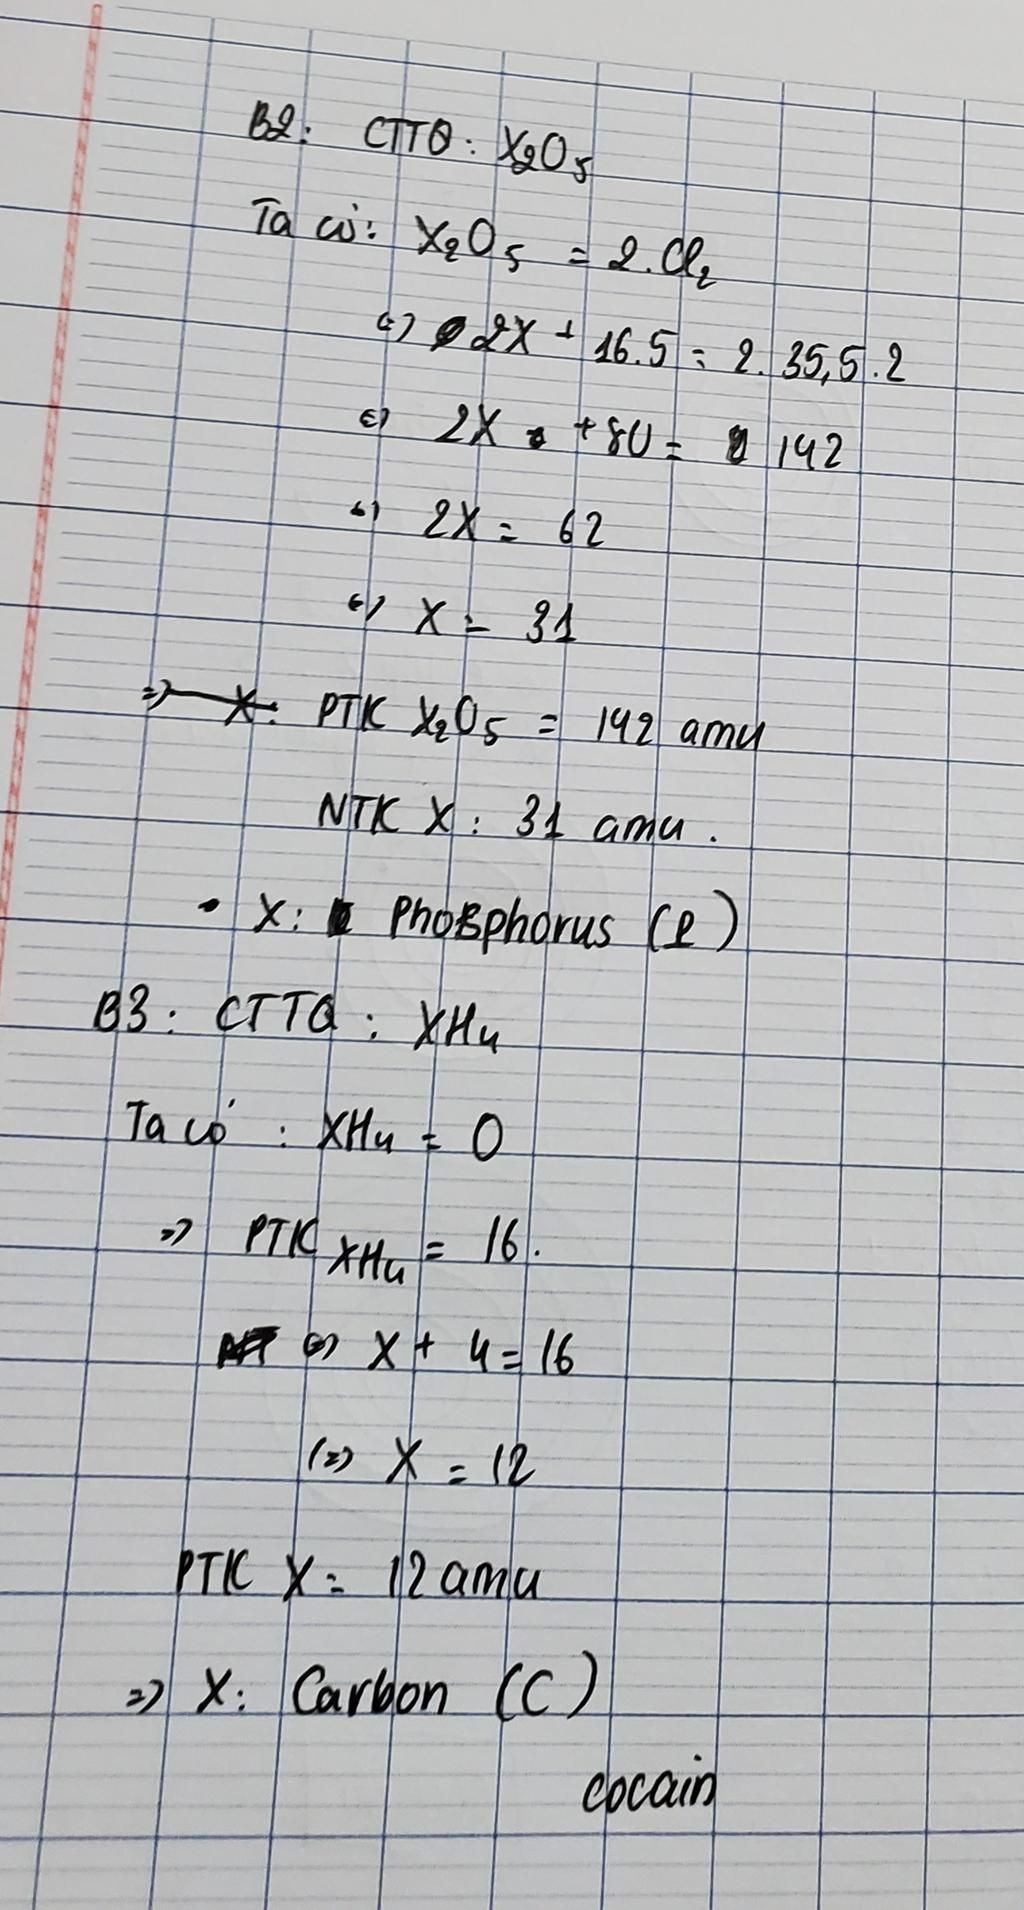 B2: CTTQ: X₂O₅
Ta có: X₂O₅ = 2.Cl₂
(=) 2X + 16.5 = 2.35,5.2
(=) 2X + 80 = 142
(=) 2X = 62
(=) X = 31
=> X: PTK X₂O₅ = 142 amu
NTK X: 31 amu.
• X: Phosphorus (P)
B3: CTTQ: XH₄
Ta có: XH₄ = O
=> PTK XH₄ = 16.
(=) X + 4 = 16
(=) X = 12
PTK X = 12 amu
=> X: Carbon (C)
cocain